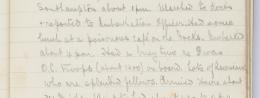 Southampton about 1pm. Marched to docks
& reported to Embarkation Officer. Had some
lunch at a poisonous café on the Docks. Embarked
about 4 pm. Had a busy time as I was
O.C. Troops (about 1200) on board. Lots of
who are splendid fellows. Arrived Havre about